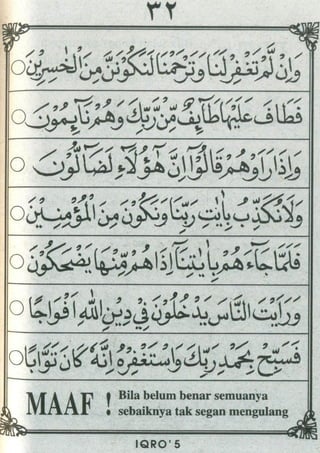 ٣٢
وَاِنْ لَّمْ تَغْفِرْ لَنَا وَتَرْحَمْنَا لَنَكُوْنَنَّ مِنَ الْخٰسِرِيْنَ
فَطَافَ عَلَيْهَا طَآئِفٌ مِّنْ رَّبِّكَ وَهُمْ نَآئِمُوْنَ
وَاِذَا رَاَوْهُمْ قَالُوْٓا اِنَّ هٰٓؤُلَآءِ لَضَآلُّوْنَ
وَلَا نُكَذِّبُ بِاٰيٰتِ رَبِّنَا وَنَكُوْنَ مِنَ الْمُؤْمِنِيْنَ
فَلَمَّا جَآءَهُمْ بِاٰيٰتِنَآ اِذَاهُمْ مِّنْهَا يَضْحَكُوْنَ
وَرَاَيْتَ النَّاسَ يَدْخُلُوْنَ فِيْ دِيْنِ اللّٰهِ اَفْوَاجًا
فَسَبِّحْ بِحَمْدِ رَبِّكَ وَاسْتَغْفِرْهُ اِنَّهٗ كَانَ تَوَّابًا
MAAF ! Bila belum benar semuanya
sebaiknya tak segan mengulang
IQRO' 5